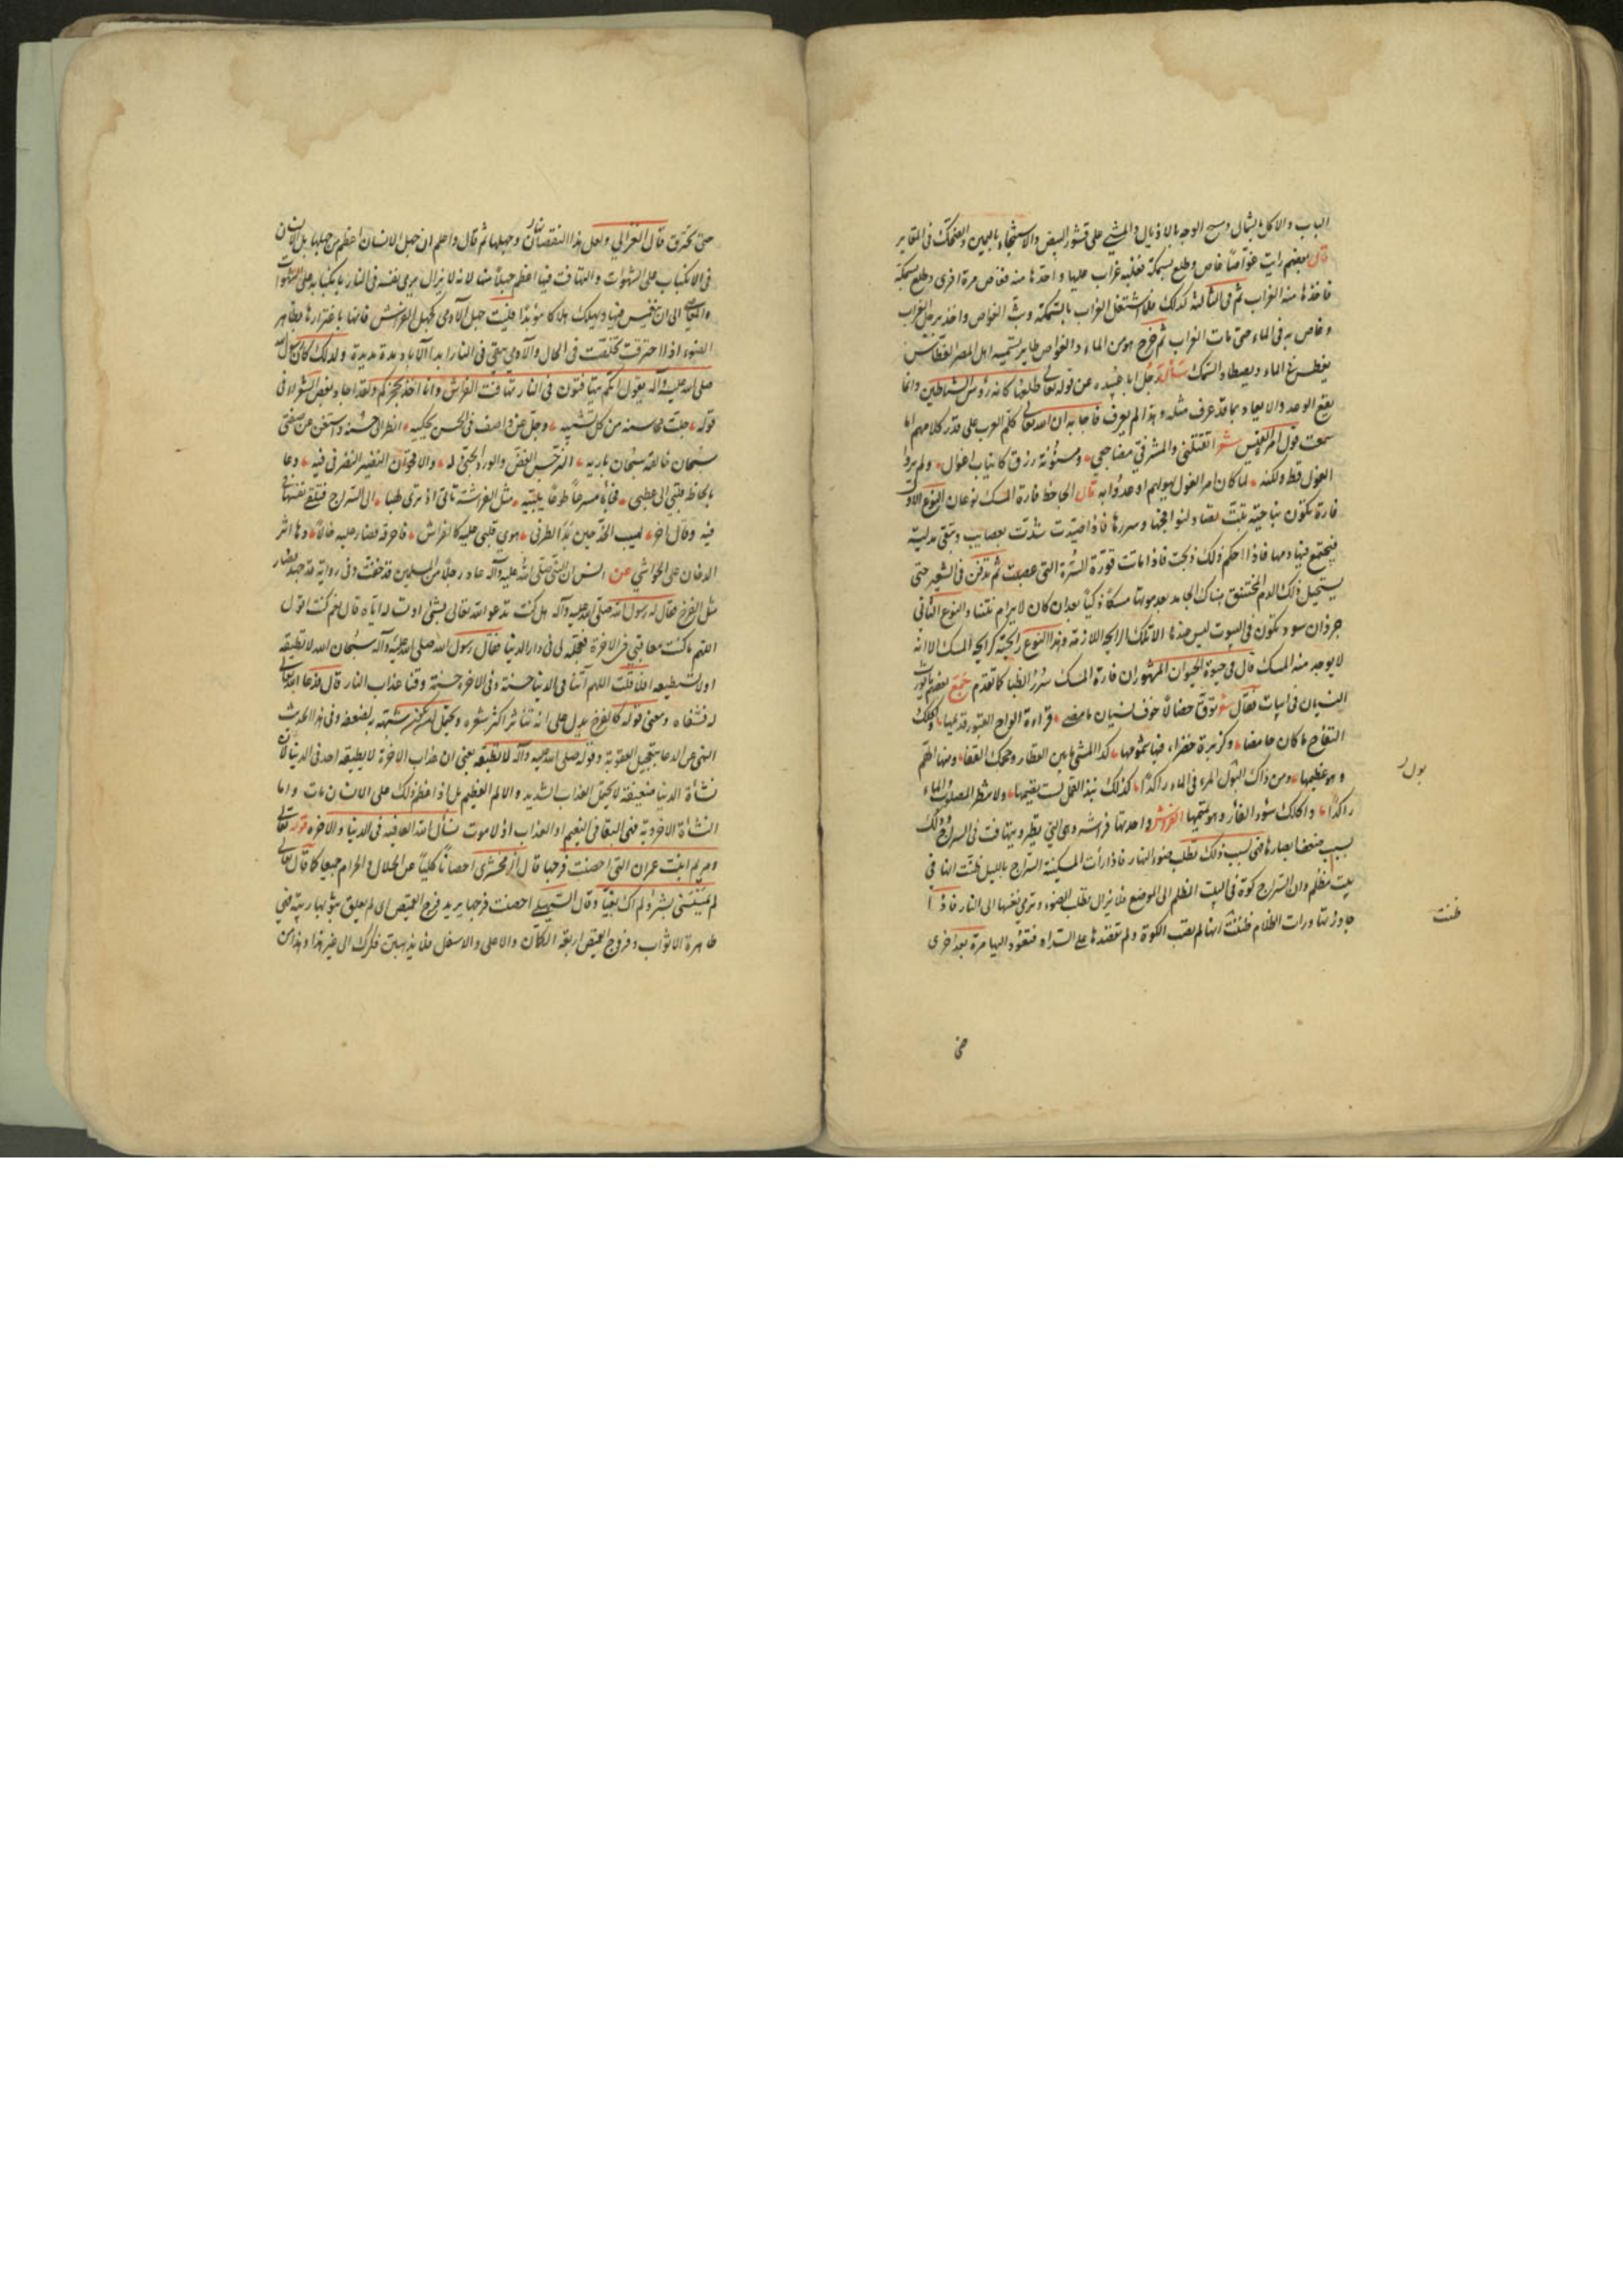 الباب والاكل بشمال ومسح الوجه بالاذيال والمشي على قشور البيض والاستنجاء باليمين والضحك في المقابر
قال بعضهم رايت غواصا غاص وطلع بسمكة فغلبه غراب عليها واخذها منه فغاص مرة اخرى وطلع بسمكة
فاخذها منه الغراب ثم في الثالثة كذلك فلما اشتغل الغراب بالسمكة وثب الغواص واخذ برجل الغراب
وغاص به في الماء حتى مات الغراب ثم خرج هو من الماء والغواص طاير يسميه اهل المصر الغطاس
يغطس في الماء ويصطاد السمك سأل رجل ابا عبيده عن قوله تعالى طلعها كانه رؤس الشياطين وانما
يقع الوعد والايعاد بما قد عرف مثله وهذا لم يعرف فاجابه ان الله تعالى كلم العرب على قدر كلامهم اما
سمعت قول امرء القيس شعر اتقتلني والمشرفي مضاجعي ومسنونة زرق كانياب اغوال ولم يروا
الغول قط ولكنه لما كان امر الغول يهولهم اوعدوا به قال الجاحظ فارة المسك نوعان النوع الاول
فارة تكون بناحية تبت تصاد لنوافجها وسررها فاذا صيدت شدت بعصايب وتبقى مدلية
فيجتمع فيها دمها فاذا احكم ذلك ذبحت فاذا ماتت قورة السرة التي عصبت ثم تدفن في الشعير حتى
يستحيل ذلك الدم المختنق هناك الجامد بعد موتها مسكا ذكيا بعد ان كان لا يرام نتنا والنوع الثاني
جرذان سود تكون في البيوت ليس عندها الا تلك الرايحة اللازمة وهذا النوع رايحته كرايحة المسك الا انه
لا يوجد منه المسك قال في حيوة الحيوان المشهور ان فارة المسك سرر الظبا كما تقدم جمع بعضهم ما يورث
النسيان في ابيات فقال شعر توق خصالا خوف نسيان ما مضى قراءة الواح القبور تديمها واكلك
التفاح ما كان حامضا وكزبرة خضراء فيها شمومها كذا المشي ما بين القطار وحجمك القفا ومنها الهم
وهو عظيمها ومن ذاك البول المرء في الماء راكدا كذلك نبذ القمل لست تقيمها ولا تنظر المصلوب الماء
راكدا واكلك سؤر الفار وهو تميمها الفراش واحدتها فراشه وهي التي يطير ويتهافت في السراج وذلك
بسبب ضعف ابصارها فهي بسبب ذلك تطلب ضوء النهار فاذا رأت المسكينة السراج بالليل ظنت انها في
بيت مظلم وان السراج كوة في البيت المظلم الى الموضع فلا يزال يطلب الضوء وترمي بنفسها الى النار فاذا
جاوزتها ورات الظلام ظننت انها لم تصب الكوة ولم تقصدها على السداد فتعود اليها مرة بعد اخرى
بول
ظنت
حتى
حتى تحترق قال الغزالي ولعل هذا لنقصانها وجهلها ثم قال واعلم ان جهل الانسان اعظم من جهلها بل الانسان
في الانكباب على الشهوات والتهافت فيها اعظم جهلا منها لانه لا يزال يرمي نفسه في النار بانكبابه على الشهوات
والمعاصي الى ان ينغمس فيها ويهلك هلاكا مؤبدا فليت جهل الآدمي كجهل الفراش فانها باغترارها بظاهر
الضوء اذا احترقت تخلصت في الحال والآدمي يبقى في النار ابد الآباد مدة مديدة ولذلك كان رسول الله
صلى الله عليه وآله يقول انكم تتهافتون في النار تهافت الفراش وانا اخذ بحجزكم ولقد اجاد بعض الشعراء في
قوله جلت محاسنه من كل تشبيه وجل عن واصف في الحسن يحكيه انظر الى حسنه واستغن عن صفتي
سبحان خالقه سبحان باريه النرجس الغض والورد الجني له والاقحوان النضير النضر في فيه دعا
بالحاظ قلبي الى عطبي فجاءه مسرعا طوعا يلبيه مثل الفراشة تاتي اذ ترى لهبا الى السراج فتلقي نفسها
فيه وقال اخر لهيب الخد حين بدا لطرفي هوى قلبي عليه كالفراش فاحرقه فصار عليه خالا وها اثر
الدخان على الحواشي عن انس ان النبي صلى الله عليه وآله عاد رجلا من المسلمين قد خفت وفي رواية قد جهد فصار
مثل الفرخ فقال له رسول الله صلى الله عليه وآله هل كنت تدعو الله تعالى بشئ او تساله اياه قال نعم كنت اقول
اللهم ما كنت معاقبني في الاخرة فعجله لي في دار الدنيا فقال رسول الله صلى الله عليه وآله سبحان الله لا تطيقه
او لا تستطيعه افلا قلت اللهم آتنا في الدنيا حسنة وفي الاخره حسنة وقنا عذاب النار قال فدعا الله تعالى
له فشفاه ومعنى قوله كالفرخ يدل على انه تناثر اكثر شعره ويحتمل شبهه بضعفه وفي هذا الحديث
النهي عن الدعا بتعجيل العقوبة وقوله صلى الله عليه وآله لا تطيقه يعني ان عذاب الاخرة لا يطيقه احد في الدنيا لان
نشأة الدنيا ضعيفة لا يحتمل العذاب الشديد والالم العظيم بل اذا عظم ذلك على الانسان مات واما
النشأة الاخروية فهي للبقا في النعيم او العذاب اذ لا موت نسأل الله العافيه في الدنيا والاخره قوله تعالى
ومريم ابنت عمران التي احصنت فرجها قال الزمخشري احصانا كليا عن الحلال والحرام جميعا كما قال تعالى
لم يمسسني بشر ولم اك بغيا وقال السهيلي احصنت فرجها يريد فرج القميص اي لم يعلق بثوبها ريبة فهي
طاهرة الاثواب وفروج القميص اربعة الكمان والاعلى والاسفل فلا يذهبن فكرك الى غير هذا وهذا من